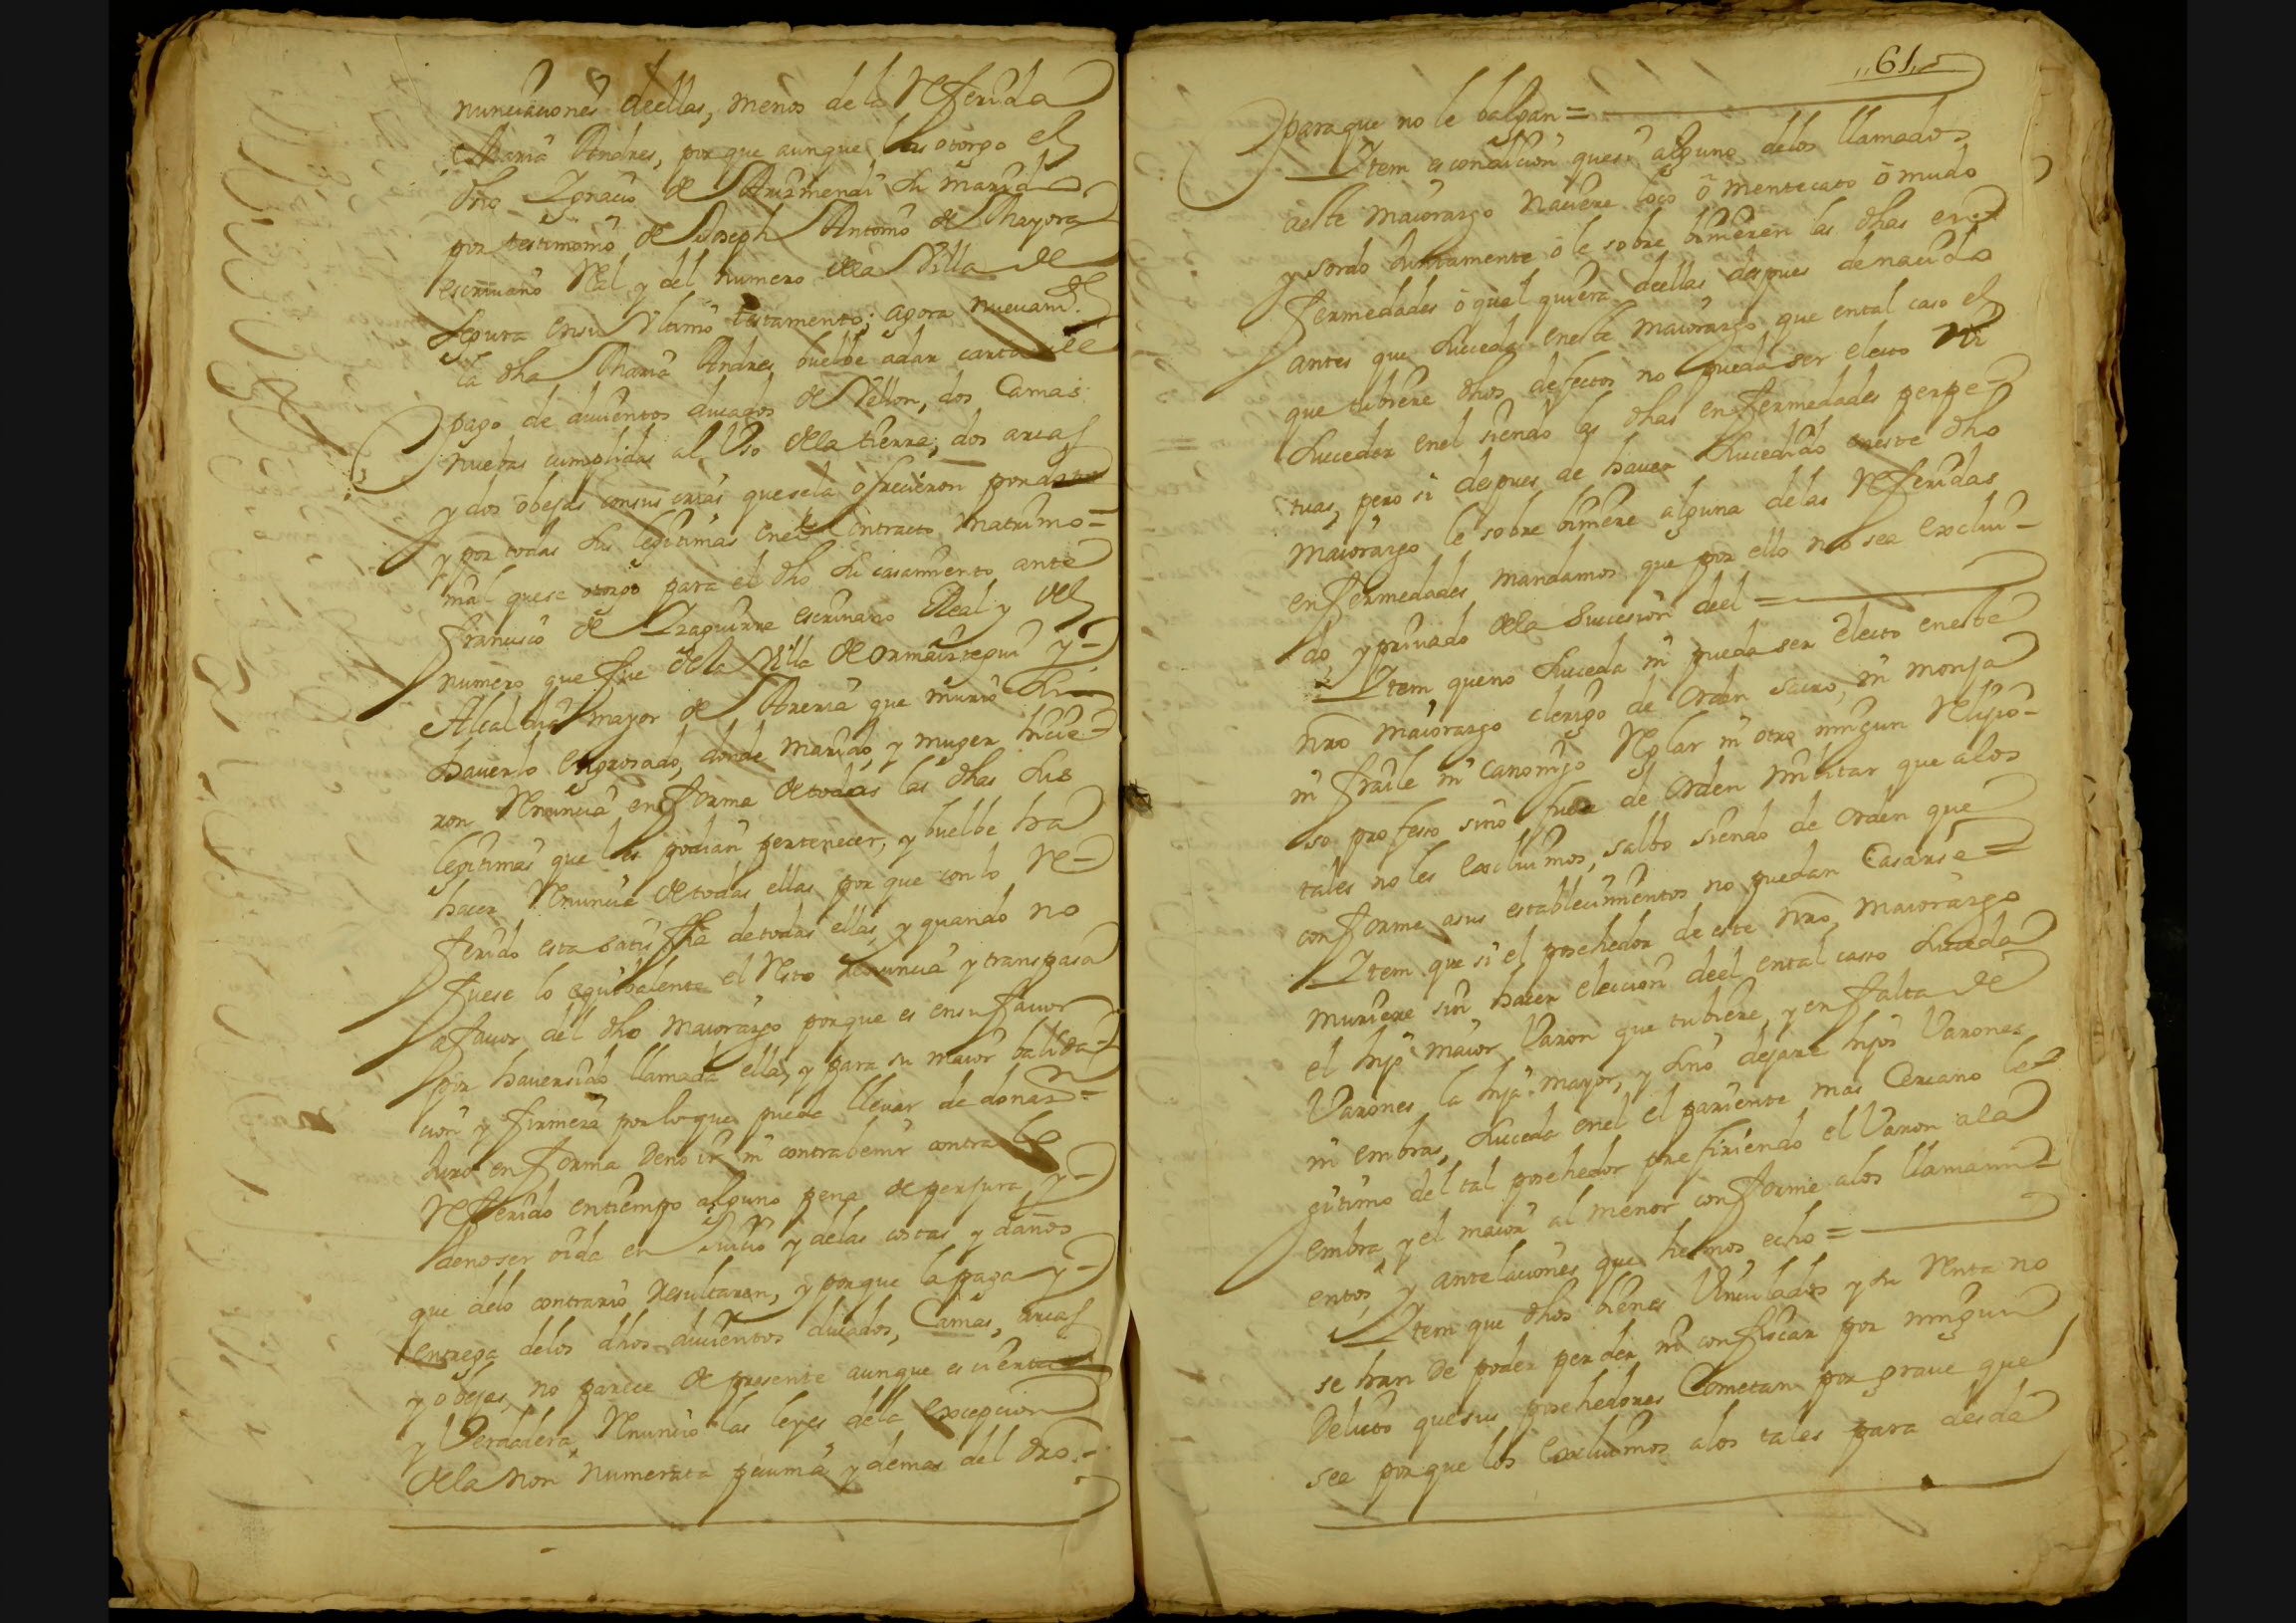 nunciaciones deellas, menos de la Referida
Maria Andres, porque aunque las otorgo el
dho Ygnacio de Arizmendi su marido
por testimonio de Joseph Antonio de Mayora
escrivano Real y del numero dela Villa de
Segura ensu Vltimo testamento; agora nuevamte
la dha Maria Andres buelbe adar carta de
pago de ducientos ducados de Vellon, dos Camas
nuebas cumplidas al Vso dela tierra, dos arcas
y dos obejas consus crias quesela ofrecieron por
y por todas sus legitimas enel Contracto matrimo=
nial quese otorgo para el dho su casamiento ante
Francisco de Yzaguirre escrivano Real y del
numero que fue dela Villa de ormaiztegui y
Alcaldia mayor de Areria que murio sin
haverlo engrosado, donde marido, y muger hicie=
ron Renuncia en forma detodas las dhas sus
legitimas que les podian pertenecer, y buelbe ha
hacer Renuncia detodas ellas porque conlo Re=
ferido esta satisfha detodas ellas, y quando no
fuese lo equibalente el Resto Renuncia y transpasa
afavor del dho maiorazgo porque es ensu favor
por haversido llamada ella, y para su maior balida=
cion y firmeza por loque puede llevar de donaz=
Juro en forma denoir ni contrabenir contra lo
Referido entiempo alguno pena de perjura, y
denoser oida en Juicio y delas costas y daños
que delo contrario Resultaren, y porque la paga y
entrega delos dhos ducientos ducados, Camas, arcas
y obejas, no parece de presente aunque es cierta
y Verdadera, Renuncio las leyes dela excepcion
dela non numerata pecunia y demas del dro.=
,,61,,
para que no le balgan =
Ytem es condicion quesi alguno delos llamados
aeste maiorazgo naciere loco ô mentecato ô mudo
y sordo Juntamente ô le sobre binieren las dhas en=
fermedades ô qual quiera deellas despues denacido
antes que suceda eneste maiorazgo que ental caso el
que tubiere dhos defectos no pueda ser electo ni
Succedor enel siendo las dhas enfermedades perpe=
tuas, pero si despues de haver Sucedido eneste dho
maiorazgo le sobre biniere alguna delas Referidas
enfermedades, mandamos que por ello no sea exclui=
do, y privado dela Succesion deel =
Ytem, queno Suceda ni pueda ser electo eneste
nro maiorazgo clerigo de orden sacro, ni monja
ni fraile ni canonigo Reglar ni otro ningun Religio=
so professo sino fuere de orden militar que alos
tales no les excluimos, salbo siendo de orden que
conforme asus establecimientos no puedan Casarse =
Ytem que si el posehedor de este nro, maiorazgo
muriere sin hacer eleccion deel ental casso suceda
el hijo maior Varon que tubiere, y en falta de
Varones la hija mayor, y sino dejare hijos Varones
ni embras, suceda enel el pariente mas Cercano le=
gitimo del tal posehedor prefiriendo el Varon ala
embra, y el maior al menor conforme alos llamami=
entos, y antelaciones que hemos echo =
Ytem que dhos bienes Vinculados y su Renta no
se han de poder perder ni confiscar por ningun
Delicto quesus posehedores Cometan por grave que
sea porque los excluimos alos tales para desde